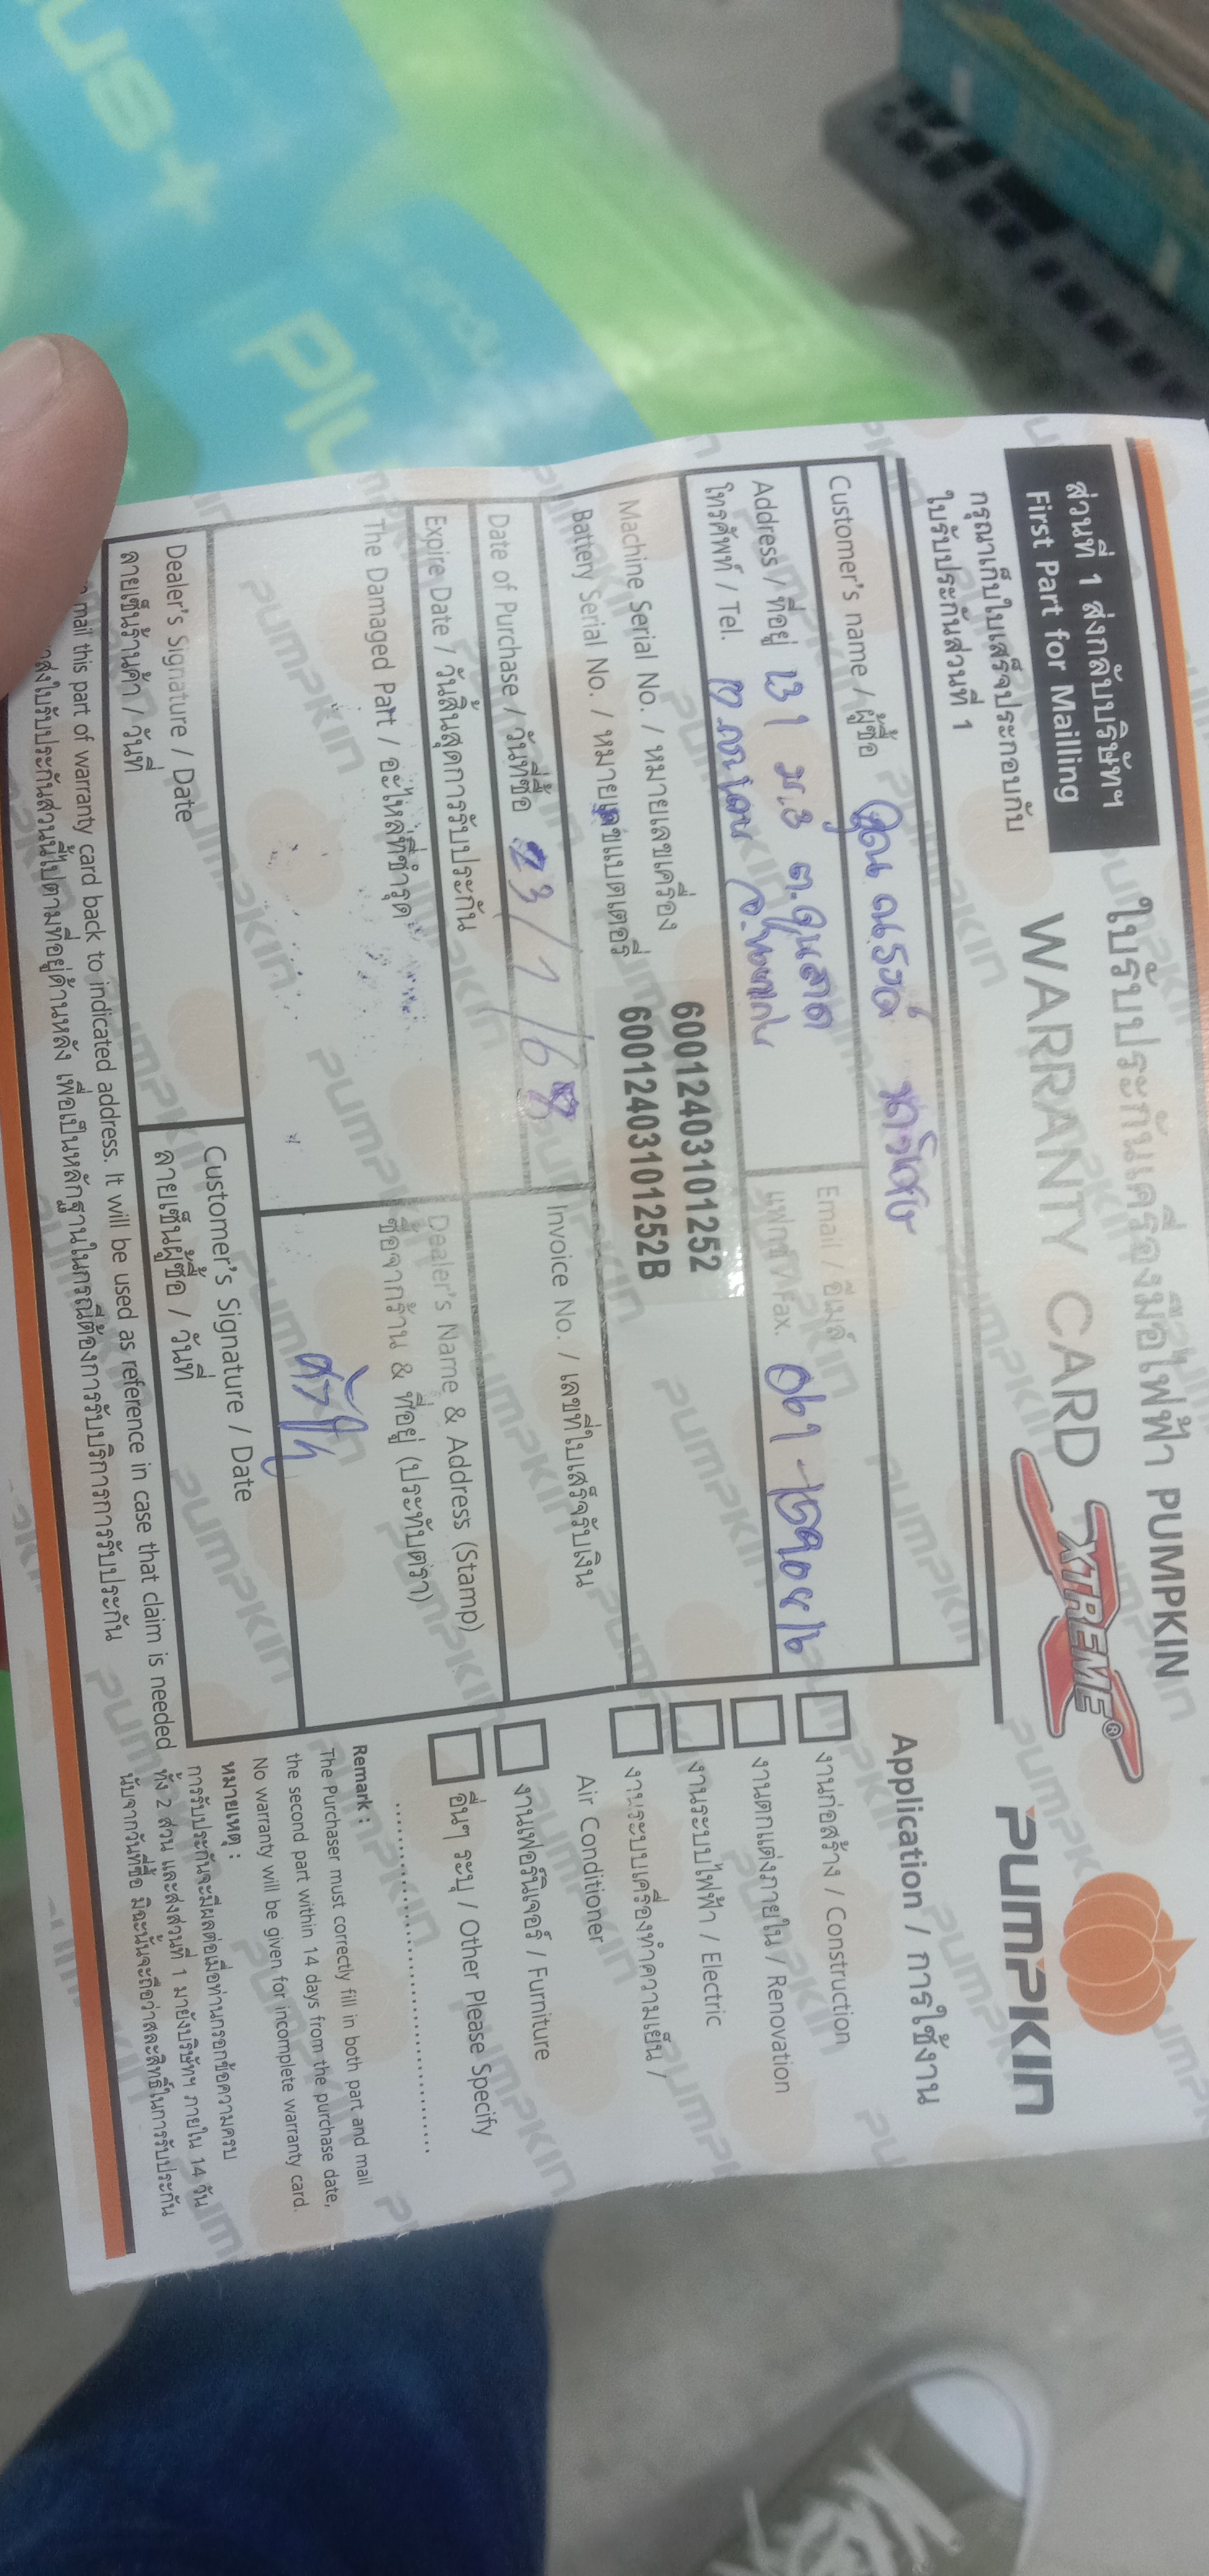 ส่วนที่ 1 ส่งกลับบริษัทฯ
First Part for Mailling
ใบรับประกันเครื่องมือไฟฟ้า PUMPKIN
WARRANTY CARD XTREME®
PUMPKIN
กรุณาเก็บใบเสร็จประกอบกับ
ใบรับประกันส่วนที่ 1
Customer's name / ผู้ซื้อ คุณ ณรงค์
Email / อีเมล์
Address / ที่อยู่ 131 ม.3 ต.
โทรศัพท์ / Tel.
แฟกซ์ / Fax.
Machine Serial No. / หมายเลขเครื่อง 6001240310101252
Battery Serial No. / หมายเลขแบตเตอรี่ 6001240310101252B
Date of Purchase / วันที่ซื้อ 23/1/68
Invoice No. / เลขที่ใบเสร็จรับเงิน
Expire Date / วันสิ้นสุดการรับประกัน
Dealer's Name & Address (Stamp)
ซื้อจากร้าน & ที่อยู่ (ประทับตรา)
The Damaged Part / อะไหล่ที่ชำรุด
Dealer's Signature / Date
ลายเซ็นร้านค้า / วันที่
Customer's Signature / Date
ลายเซ็นผู้ซื้อ / วันที่
mail this part of warranty card back to indicated address. It will be used as reference in case that claim is needed
ส่งใบรับประกันส่วนนี้ไปตามที่อยู่ด้านหลัง เพื่อเป็นหลักฐานในกรณีต้องการรับบริการการรับประกัน
Application / การใช้งาน
งานก่อสร้าง / Construction
งานตกแต่งภายใน / Renovation
งานระบบไฟฟ้า / Electric
งานระบบเครื่องทำความเย็น /
Air Conditioner
งานเฟอร์นิเจอร์ / Furniture
อื่นๆ ระบุ / Other Please Specify
Remark :
The Purchaser must correctly fill in both part and mail
the second part within 14 days from the purchase date,
No warranty will be given for incomplete warranty card.
หมายเหตุ :
การรับประกันจะมีผลต่อเมื่อท่านกรอกข้อความครบ
ทั้ง 2 ส่วน และส่งส่วนที่ 1 มายังบริษัทฯ ภายใน 14 วัน
นับจากวันที่ซื้อ มิฉะนั้นจะถือว่าสละสิทธิ์ในการรับประกัน